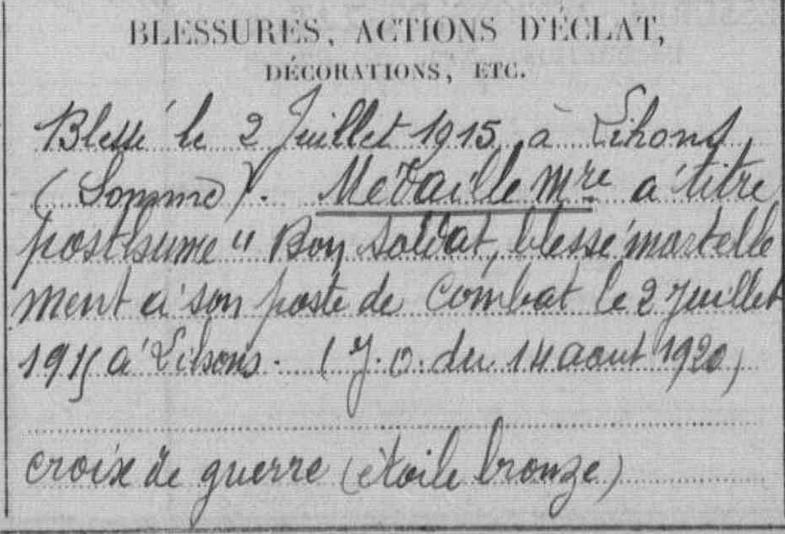 BLESSURES, ACTIONS D'ÉCLAT,
DÉCORATIONS, ETC.
Blessé le 2 Juillet 1915 à Lihons
(Somme). Médaille Mre à titre
posthume " Bon soldat, blessé mortelle
ment à son poste de combat le 2 Juillet
1915 à Lihons. (J.O. du 14 aout 1920)
croix de guerre (étoile bronze)